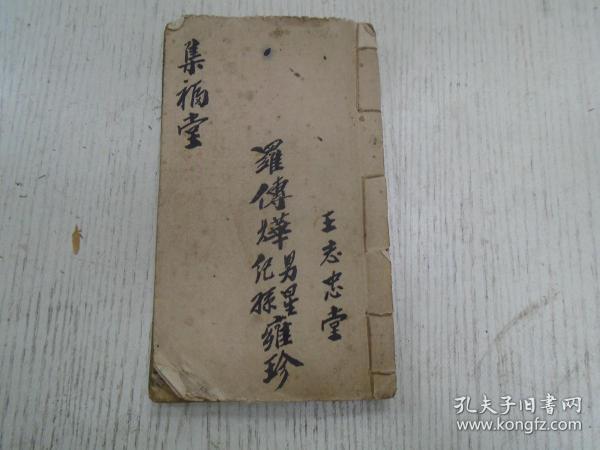 王志忠堂
羅傳燁男星雍珍
紀孫
集福堂
孔夫子旧書网
www.kongfz.com